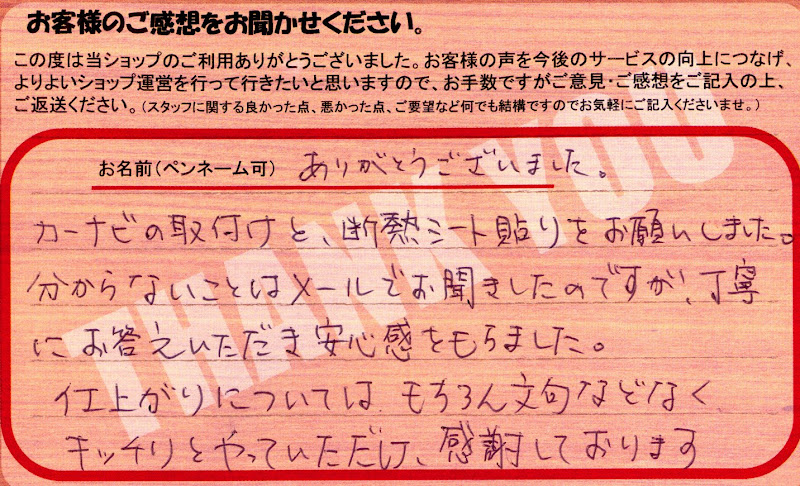 お客様のご感想をお聞かせください。
この度は当ショップのご利用ありがとうございました。お客様の声を今後のサービスの向上につなげ、
よりよいショップ運営を行って行きたいと思いますので、お手数ですがご意見・ご感想をご記入の上、
ご返送ください。（スタッフに関する良かった点、悪かった点、ご要望など何でも結構ですのでお気軽にご記入くださいませ。）
THANK YOU
お名前（ペンネーム可） ありがとうございました。
カーナビの取付けと、断熱シート貼りをお願いしました。
分からないことはメールでお聞きしたのですが、丁寧
にお答えいただき安心感をもらました。
仕上がりについては もちろん文句などなく
キッチリとやっていただけ、感謝しております